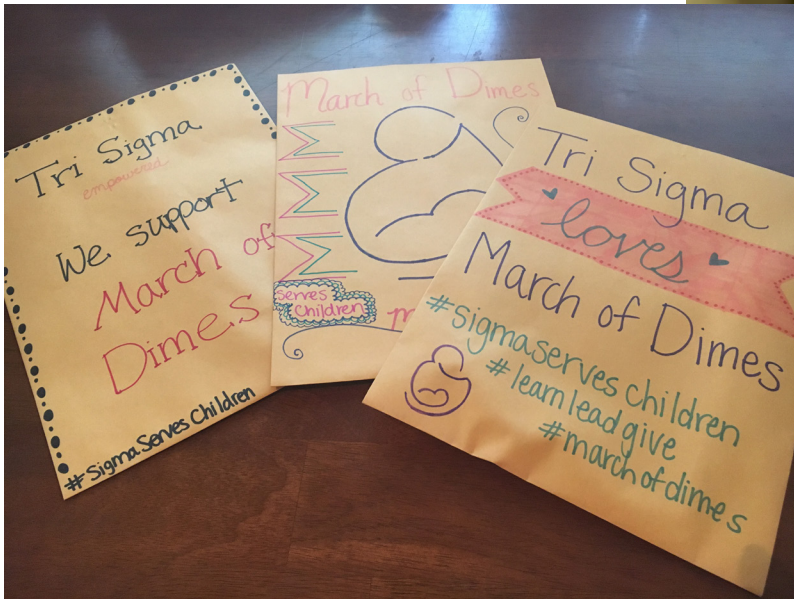 Tri Sigma
empowered
We support
March of
Dimes
#SigmaServesChildren
March of Dimes
M
M
M
serves
Children
m
Tri Sigma
loves
March of Dimes
#sigmaserves children
#learn lead give
#marchofdimes